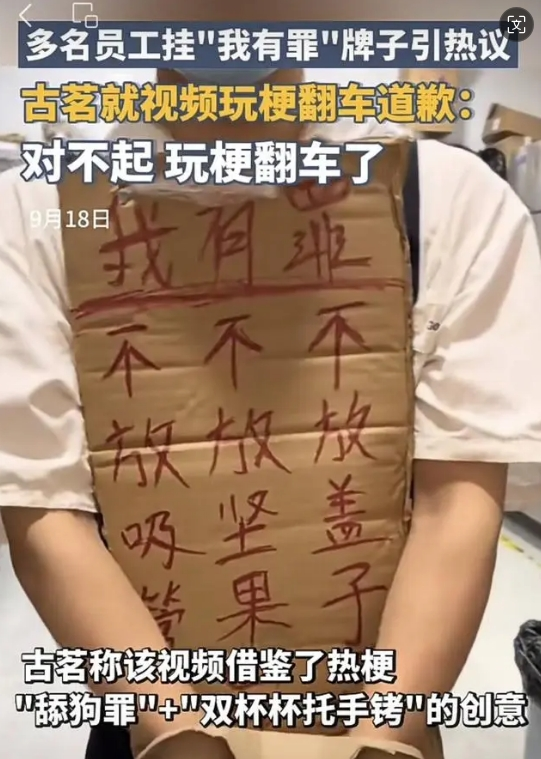 多名员工挂"我有罪"牌子引热议
古茗就视频玩梗翻车道歉：
对不起 玩梗翻车了
9月18日
我有罪
不放吸管
不放坚果
不放盖子
古茗称该视频借鉴了热梗
"舔狗罪"+"双杯杯托手铐"的创意